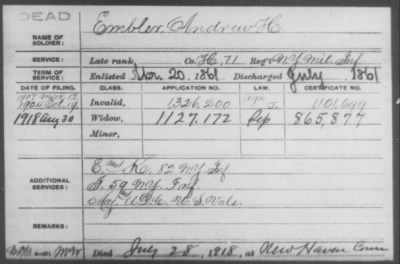 DEAD
NAME OF SOLDIER: Embler, Andrew H.
SERVICE: Late rank Co. H, 71 Reg't N.Y. Mil. Inf
TERM OF SERVICE: Enlisted 20, 1861 Discharged July 1861
DATE OF FILING. CLASS. APPLICATION NO. LAW. CERTIFICATE NO.
1904 Oct. 19 Invalid, 1326,200 1,101,699
1918 Aug 30 Widow, 1127,172 865,877
Minor,
ADDITIONAL SERVICES:
E and K. 82 N.Y. Inf
59 N.Y. Inf.
U.S. Vols.
REMARKS:
Died July 28, 1918, at New Haven Conn